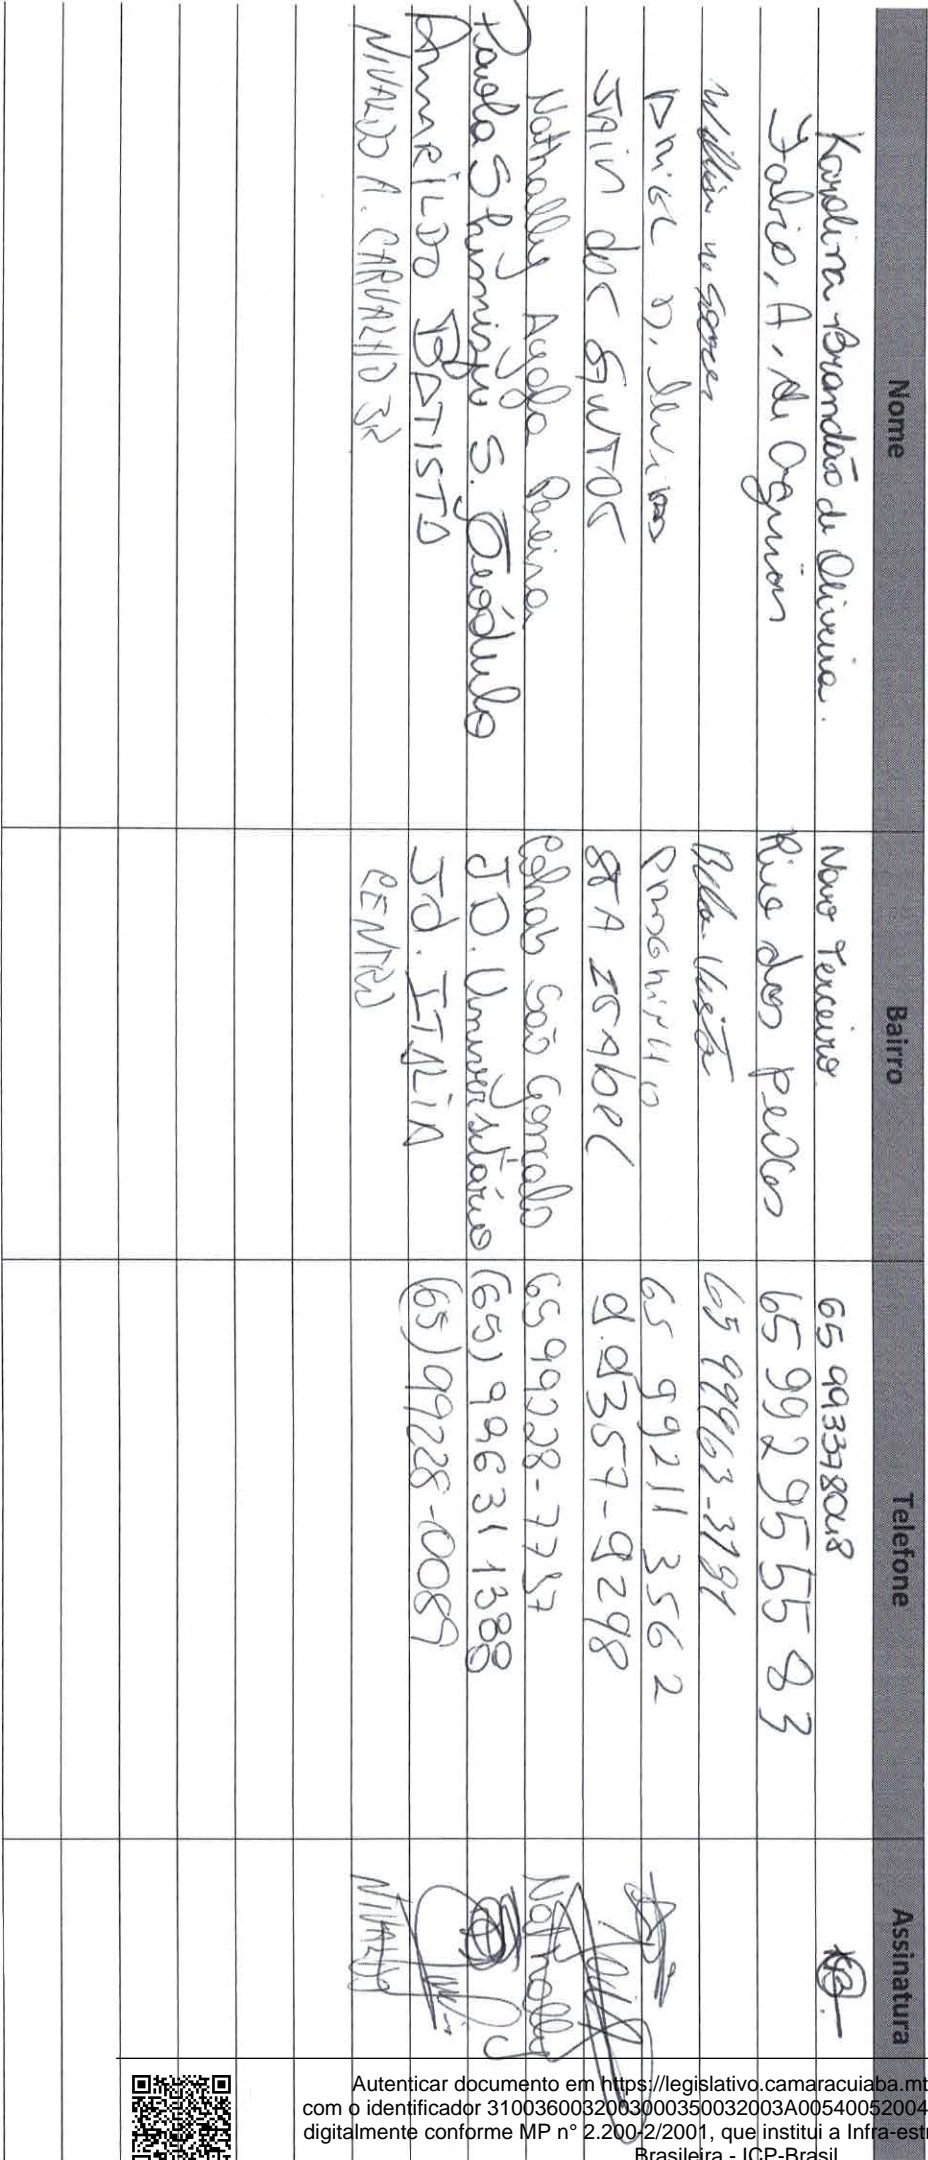 Nome Bairro Telefone Assinatura
Karolina Brandão de Oliveira. Novo Terceiro 65 993378048 KB.
Fabio, A, de Rio dos peixes 65 992955583
Willian Bela Vista 65 99963-3791
65 99211 3562
JAIR dos SANTOS STA ISAbel 9.9357-9298 Jair
Nathally Ayala Pereira Cohab São Gonçalo 65 99228-7737 Nathally
Paola Shimisu S. Teódulo JD. Universitário (65) 99631 1388
AMARILDO BATISTA Jd. ITALIA (65) 99228-0089
NIVALDO A. CARVALHO JR CENTRO NIVALDO
Autenticar documento em https://legislativo.camaracuiaba.mt
com o identificador 3100360032003000350032003A00540052004
digitalmente conforme MP nº 2.200-2/2001, que institui a Infra-est
Brasileira - ICP-Brasil